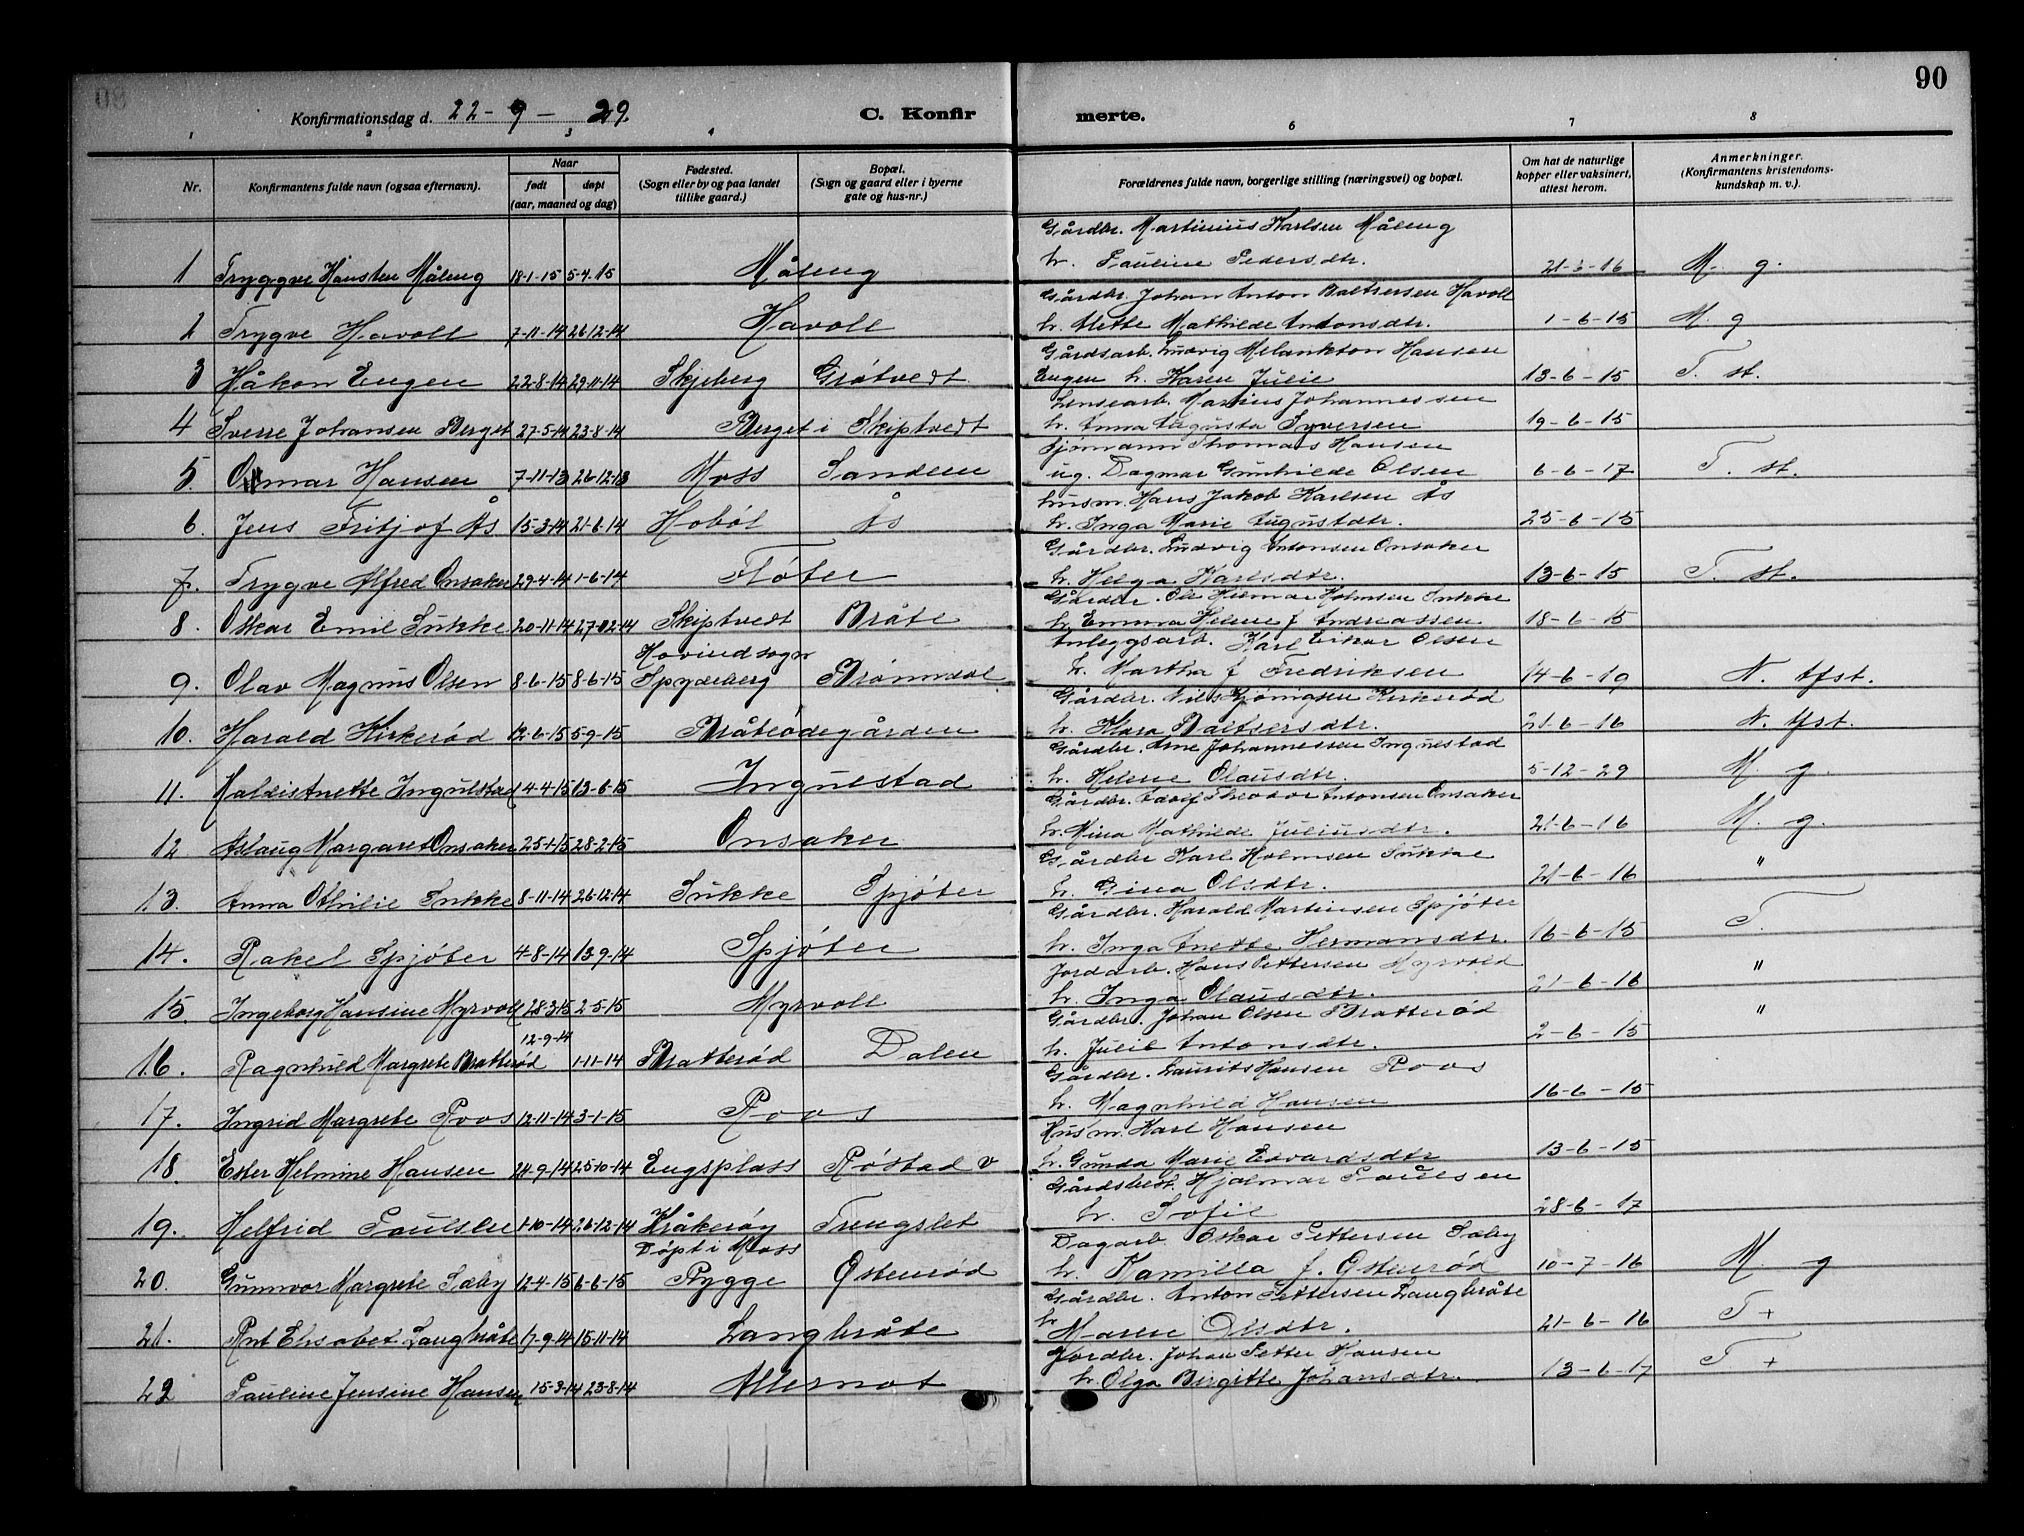 90
Konfirmationsdag d. 22-9-29. C. Konfir merte.
1 2 3 4 6 7 8
Nr. Konfirmantens fulde navn (ogsaa efternavn). Naar født døpt (aar, maaned og dag) Fødested. (Sogn eller by og paa landet tillike gaard.) Bopæl. (Sogn og gaard eller i byerne gate og hus-nr.) Forældrenes fulde navn, borgerlige stilling (næringsvei) og bopæl. Om hat de naturlige kopper eller vaksinert, attest herom. Anmerkninger. (Konfirmantens kristendoms-kundskap m. v.).
Gårdbr. Martinius Karlsen Måleng
1 Tryggve Hansten Måleng 18-1-15 5-4-15 Måleng h. Pauline Pedersdtr. 21-6-16 M. g.
Gårdbr. Johan Anton Baltsersen Havoll
2 Trygve Havoll 7-11-14 26-12-14 Havoll h. Mette Mathilde Antonsdtr. 1-6-15 M. g
Gårdsarb. Ludvig Melankton Hansen
3 Håkon Engen 22-8-14 29-11-14 Skjeberg Grøtvedt Engen h. Karen Julie 13-6-15 T. st.
Lensearb. Marius Johannessen
4 Sverre Johansen Berget 27-5-14 23-8-14 Berget i Skiptvedt h. Anna Augusta Syversen 19-6-15
Sjømann Thomas Hansen
5. Hansen 7-11-13 26-12-13 Moss Sandem ug. Dagmar Gunhilde Olsen 6-6-17 T. st.
husm. Hans Jakob Karlsen Ås
6. Jens Fritjof Ås 15-3-14 21-6-14 Hobøl Ås h. Inga Marie Augustdtr. 25-6-15
Gårdbr. Ludvig Antonsen Onsaker
7. Trygve Alfred Onsaker 29-4-14 1-6-14 Fløter h. Helga Karlsdtr. 13-6-15 T. st.
Gårdbr. Ole Hilmar Holmsen Sukke
8. Oskar Emil Sukke 20-11-14 27-12-14 Skiptvedt Bråte h. Emma Helene f Andreassen 18-6-15
Hovindsogn Anleggsarb. Karl Einar Olsen
9. Olav Magnus Olsen 8-6-15 8-6-15 Spydeberg Brønndal h. Martha f Fredriksen 14-6-19 N. tfst.
Gårdbr. Nils Kjønigsen Kirkerød
10. Harald Kirkerød 12-6-15 5-9-15 Bråteødegården h. Klara Baltsersdtr. 21-6-16 N. tfst.
Gårdbr. Arne Johannessen Ingulstad
11. Haldis Anette Ingulstad 4-4-15 13-6-15 Ingulstad h. Helene Olausdtr. 5-12-29 M. g.
Gårdbr. Adolf Theodor Antonsen Onsaker
12 Aslaug Margaret Onsaker 25-1-15 28-2-15 Onsaker h. Mina Mathilde Juliusdtr. 21-6-16 M. g.
Gårdbr Karl Holmsen Sukke
13. Anna Othilie Sukke 8-11-14 26-12-14 Sukke Spjøter h. Gina Olsdtr. 21-6-16 "
Gårdbr. Harald Martinsen Spjøter
14. Rakel Spjøter 4-8-14 13-9-14 Spjøter h. Inga Anette Hermansdtr. 16-6-15 T.
Jordarb. Hans Pettersen Myrvold
15. Ingeborg Hansine Myrvoll 28-3-15 2-5-15 Myrvoll h. Inga Olausdtr. 21-6-16 "
12-9-14 Gårdbr. Johan Olsen Bratterød
16. Ragnhild Margrete Bratterød 1-11-14 Bratterød Dalen h. Julie Antonsdtr. 2-6-15 "
Gårdbr. Laurits Hansen Roos
17. Ingrid Margrete Roos 12-11-14 3-1-15 Roos h. Magnhild Hansen 16-6-15
Husm. Karl Hansen
18. Ester Helmine Hansen 24-9-14 25-10-14 Engsplass Røstad v h. Gunda Marie Edvardsdtr 13-6-15
Gårdsbest. Hjalmar Paulsen
19. Helfrid Paulsen 1-10-14 26-12-14 Kråkerøy Trengslet h. Sofie 28-6-17
Døpt i Moss Dagarb Oskar Pettersen Sæby
20. Gunnvor Margrete Sæby 12-4-15 6-6-15 Rygge Østenrød h. Kamilla f. Østenrød 10-7-16 M. g
Gårdbr. Anton Pettersen Langbråte
21. Rut Elisabet Langbråte 17-9-14 15-11-14 Langbråte h Maren Olsdtr. 21-6-16 T+
Jordbr. Johan Petter Hansen
22 Pauline Jensine Hansen 15-3-14 23-8-14 Allernot h. Olga Birgitte Johansdtr. 13-6-17 T +